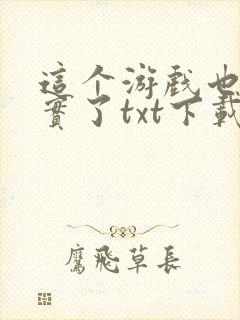 這个游戏也
實了txt下載
鷹飛草長